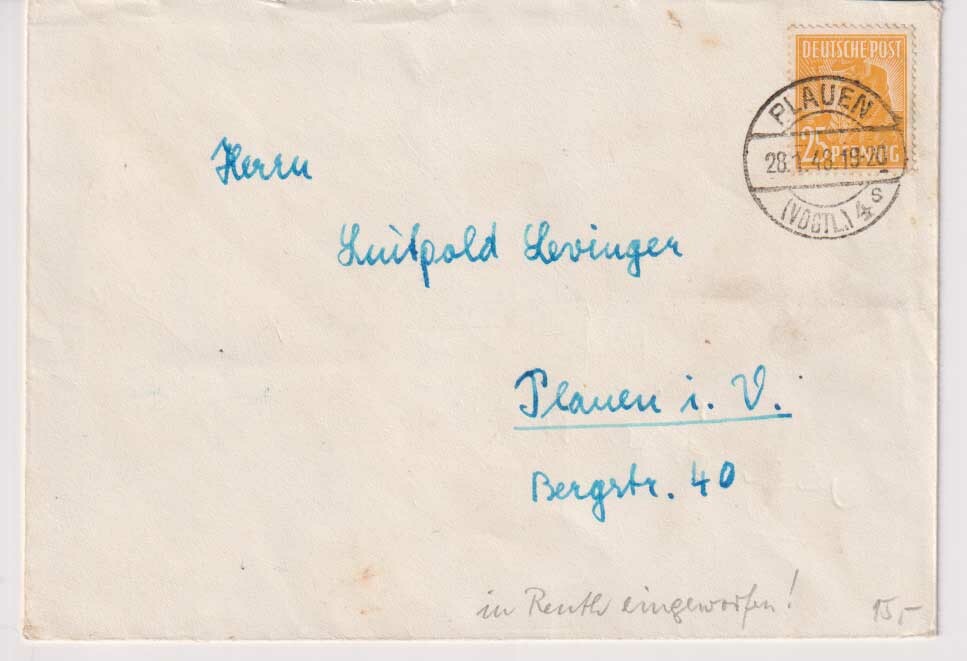 DEUTSCHE POST
25 PFENNIG
PLAUEN
28.1.48.19-20
(VOGTL.) 4 s
Herrn
Luitpold Levinger
Plauen i. V.
Bergstr. 40
in Reuth eingeworfen!
15,-